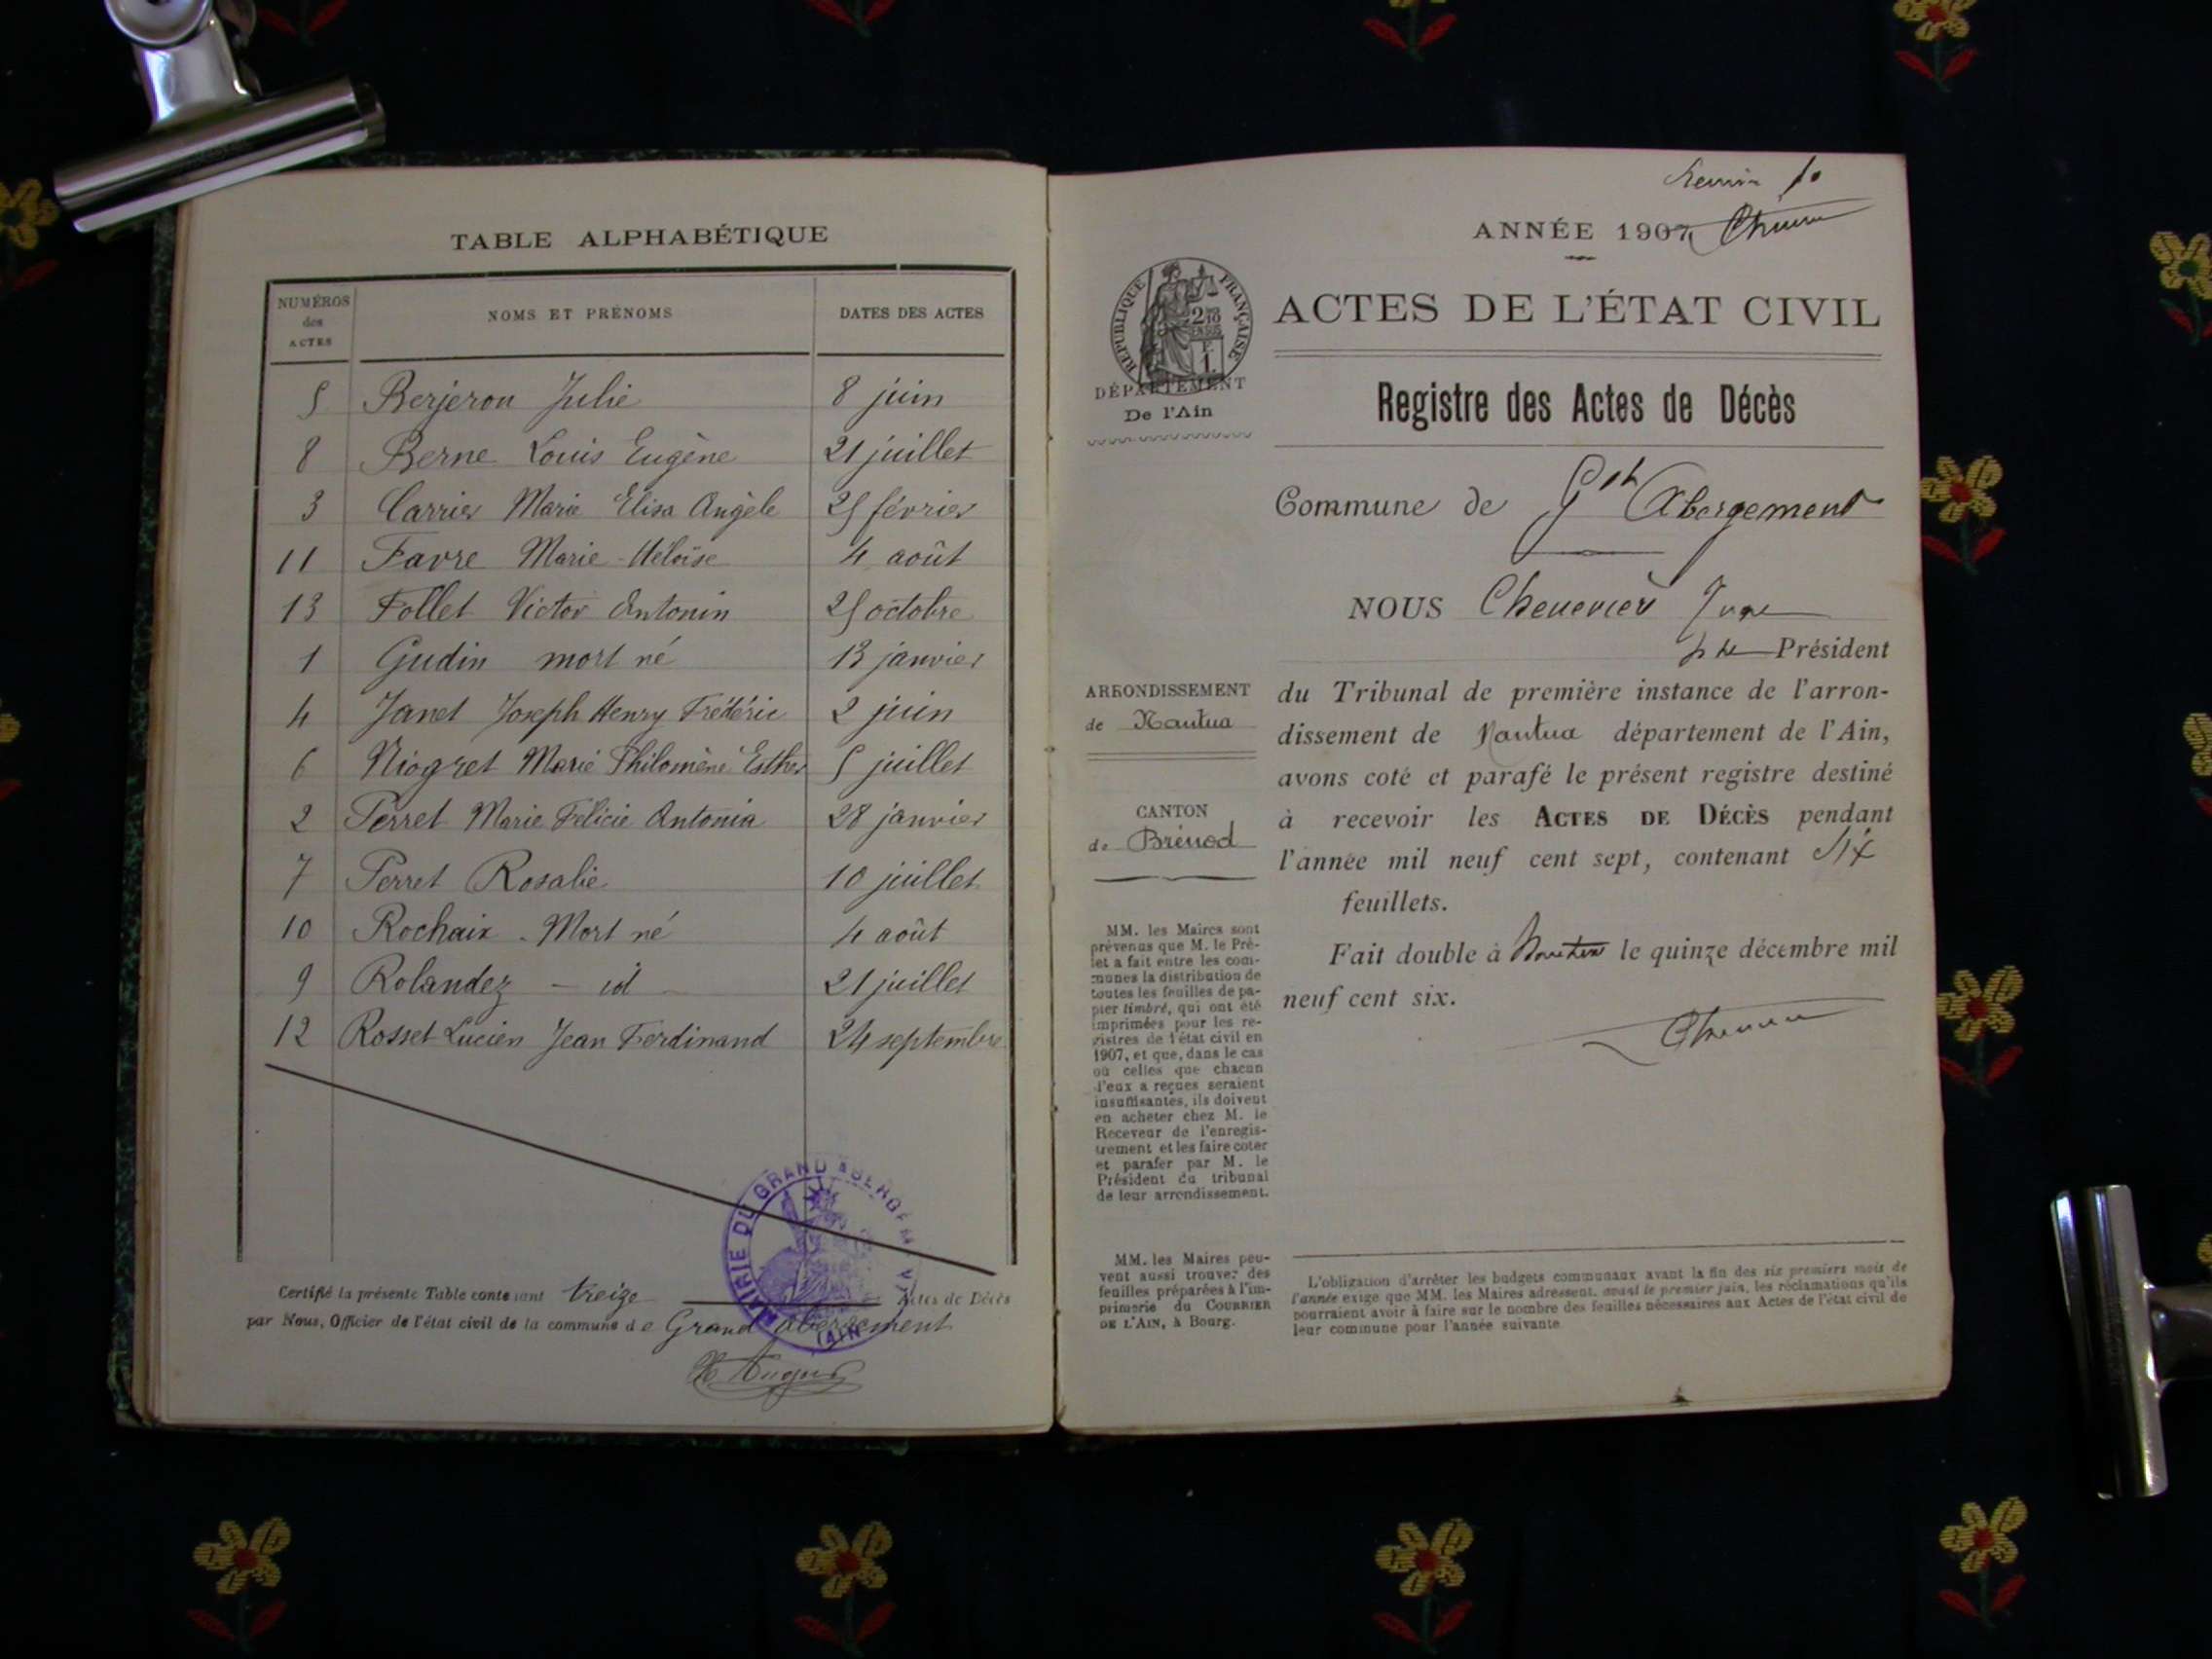 TABLE ALPHABÉTIQUE
NUMÉROS des ACTES
NOMS ET PRÉNOMS
DATES DES ACTES
5 Berjeron Julie 8 juin
8 Berne Louis Eugène 21 juillet
3 Carrier Marie Elisa Angèle 25 février
11 Favre Marie-Héloïse 4 août
13 Follet Victor Antonin 25 octobre
1 Gudin mort né 13 janvier
4 Janet Joseph Henry Frédéric 2 juin
6 Niogret Marie Philomène Esther 5 juillet
2 Perret Marie Félicie Antonia 28 janvier
7 Perret Rosalie 10 juillet
10 Rochaix - Mort né 4 août
9 Rolandez - id - 21 juillet
12 Rosset Lucien Jean Ferdinand 24 septembre
Certifié la présente Table contenant treize Actes de Décès
par Nous, Officier de l'état civil de la commune de Grand abergement
MAIRIE DU GRAND ABERGEMENT
(AIN)
ANNÉE 1907
RÉPUBLIQUE FRANÇAISE
ACTES DE L'ÉTAT CIVIL
DÉPARTEMENT
De l'Ain
Registre des Actes de Décès
Commune de Gd Abergement
NOUS Chenevier Juge
Président
ARRONDISSEMENT
de Nantua
du Tribunal de première instance de l'arron-
dissement de Nantua département de l'Ain,
avons coté et parafé le présent registre destiné
à recevoir les ACTES DE DÉCÈS pendant
l'année mil neuf cent sept, contenant six
feuillets.
Fait double à Nantua le quinze décembre mil
neuf cent six.
CANTON
de Brénod
MM. les Maires sont
prévenus que M. le Pré-
fet a fait entre les com-
munes la distribution de
toutes les feuilles de pa-
pier timbré, qui ont été
imprimées pour les re-
gistres de l'état civil en
1907, et que, dans le cas
où celles que chacun
d'eux a reçues seraient
insuffisantes, ils doivent
en acheter chez M. le
Receveur de l'enregis-
trement et les faire coter
et parafer par M. le
Président du tribunal
de leur arrondissement.
MM. les Maires peu-
vent aussi trouver des
feuilles préparées à l'im-
primerie du COURRIER
DE L'AIN, à Bourg.
L'obligation d'arrêter les budgets communaux avant la fin des six premiers mois de
l'année exige que MM. les Maires adressent, avant le premier juin, les réclamations qu'ils
pourraient avoir à faire sur le nombre des feuilles nécessaires aux Actes de l'état civil de
leur commune pour l'année suivante